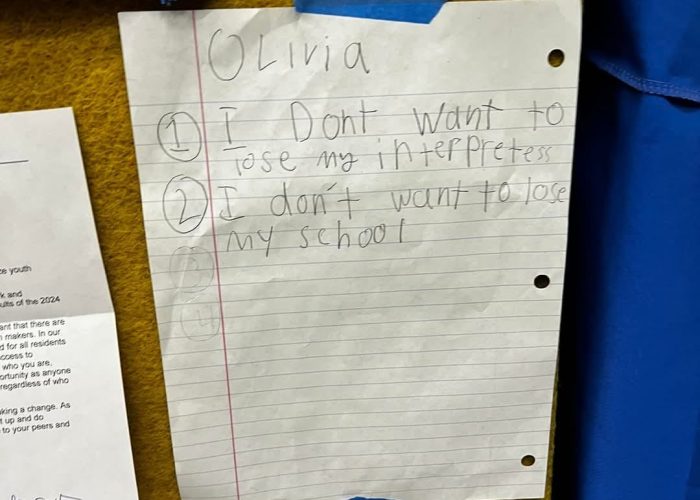 Olivia
① I Dont want to
lose my interpretess
② I don't want to lose
my school
③
④
youth
k and
ults of the 2024
ant that there are
makers. In our
d for all residents
ccess to
who you are,
ortunity as anyone
regardless of who
king a change. As
t up and do
to your peers and